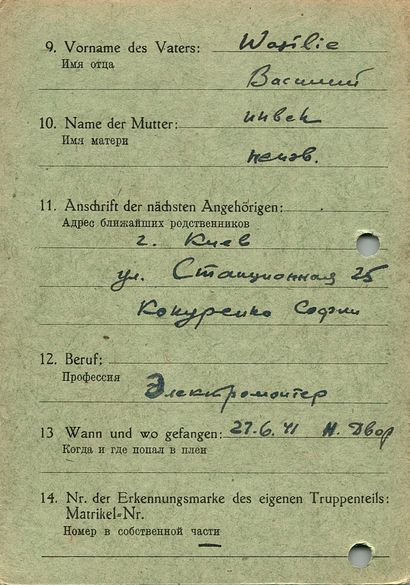 9. Vorname des Vaters: Wasilie
Имя отца
Василий
10. Name der Mutter:
Имя матери
неизв.
11. Anschrift der nächsten Angehörigen:
Адрес ближайших родственников
г. Киев
ул. Станционная 25
Кокуренко Софии
12. Beruf:
Профессия
Электромонтер
13 Wann und wo gefangen: 27.6.41 Н. Двор
Когда и где попал в плен
14. Nr. der Erkennungsmarke des eigenen Truppenteils:
Matrikel-Nr.
Номер в собственной части
—